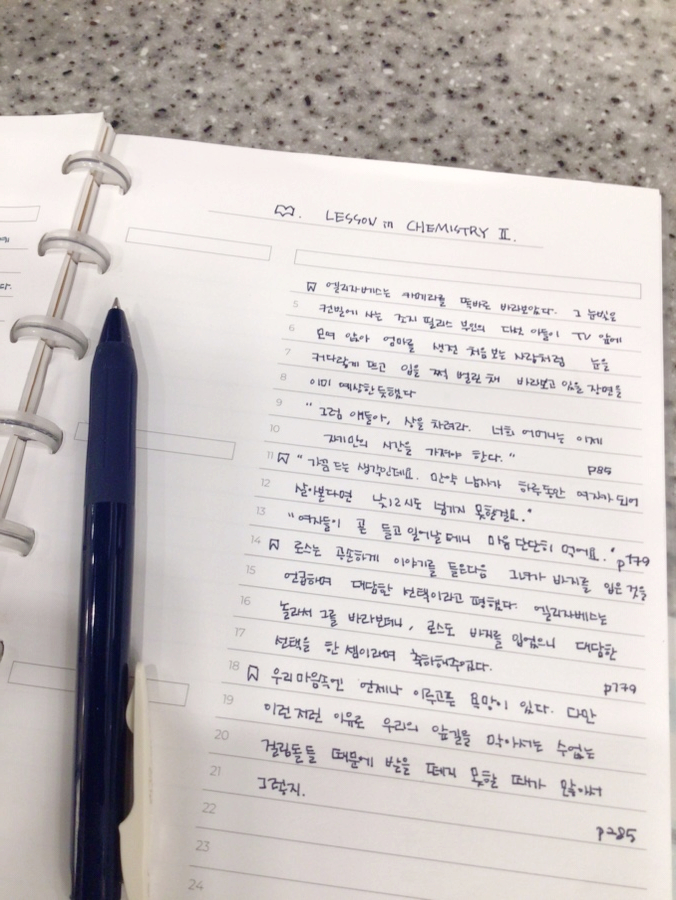 LESSON in CHEMISTRY II.
엘리자베스는 카메라를 똑바로 바라보았다. 그 눈빛은
5 건넌방에 사는 조지 필리스 부인의 다섯 아들이 TV 앞에
6 모여 앉아 엄마를 생전 처음 보는 사람처럼 눈을
7 커다랗게 뜨고 입을 쩍 벌린 채 바라보고 있을 장면을
8 이미 예상한 듯했다
9 "그럼 얘들아, 상을 차려라. 너희 어머니는 이제
10 자기만의 시간을 가져야 한다." p85
11 "가끔 드는 생각인데요. 만약 남자가 하루동안 여자가 되어
12 살아본다면 낮12시도 넘기지 못할걸요."
13 "여자들이 곧 들고 일어날테니 마음 단단히 먹어요." p179
14 로스는 공손하게 이야기를 들은다음 그녀가 바지를 입은 것을
15 언급하며 대담한 선택이라고 평했다. 엘리자베스는
16 놀라서 그를 바라보더니, 로스도 바지를 입었으니 대담한
17 선택을 한 셈이라며 축하해주었다. p179
18 우리 마음속엔 언제나 이루고픈 욕망이 있다. 다만
19 이런저런 이유로 우리의 앞길을 막아서는 수없는
20 걸림돌들 때문에 발을 떼지 못할 때가 많아서
21 그렇지.
22 p285
23
24